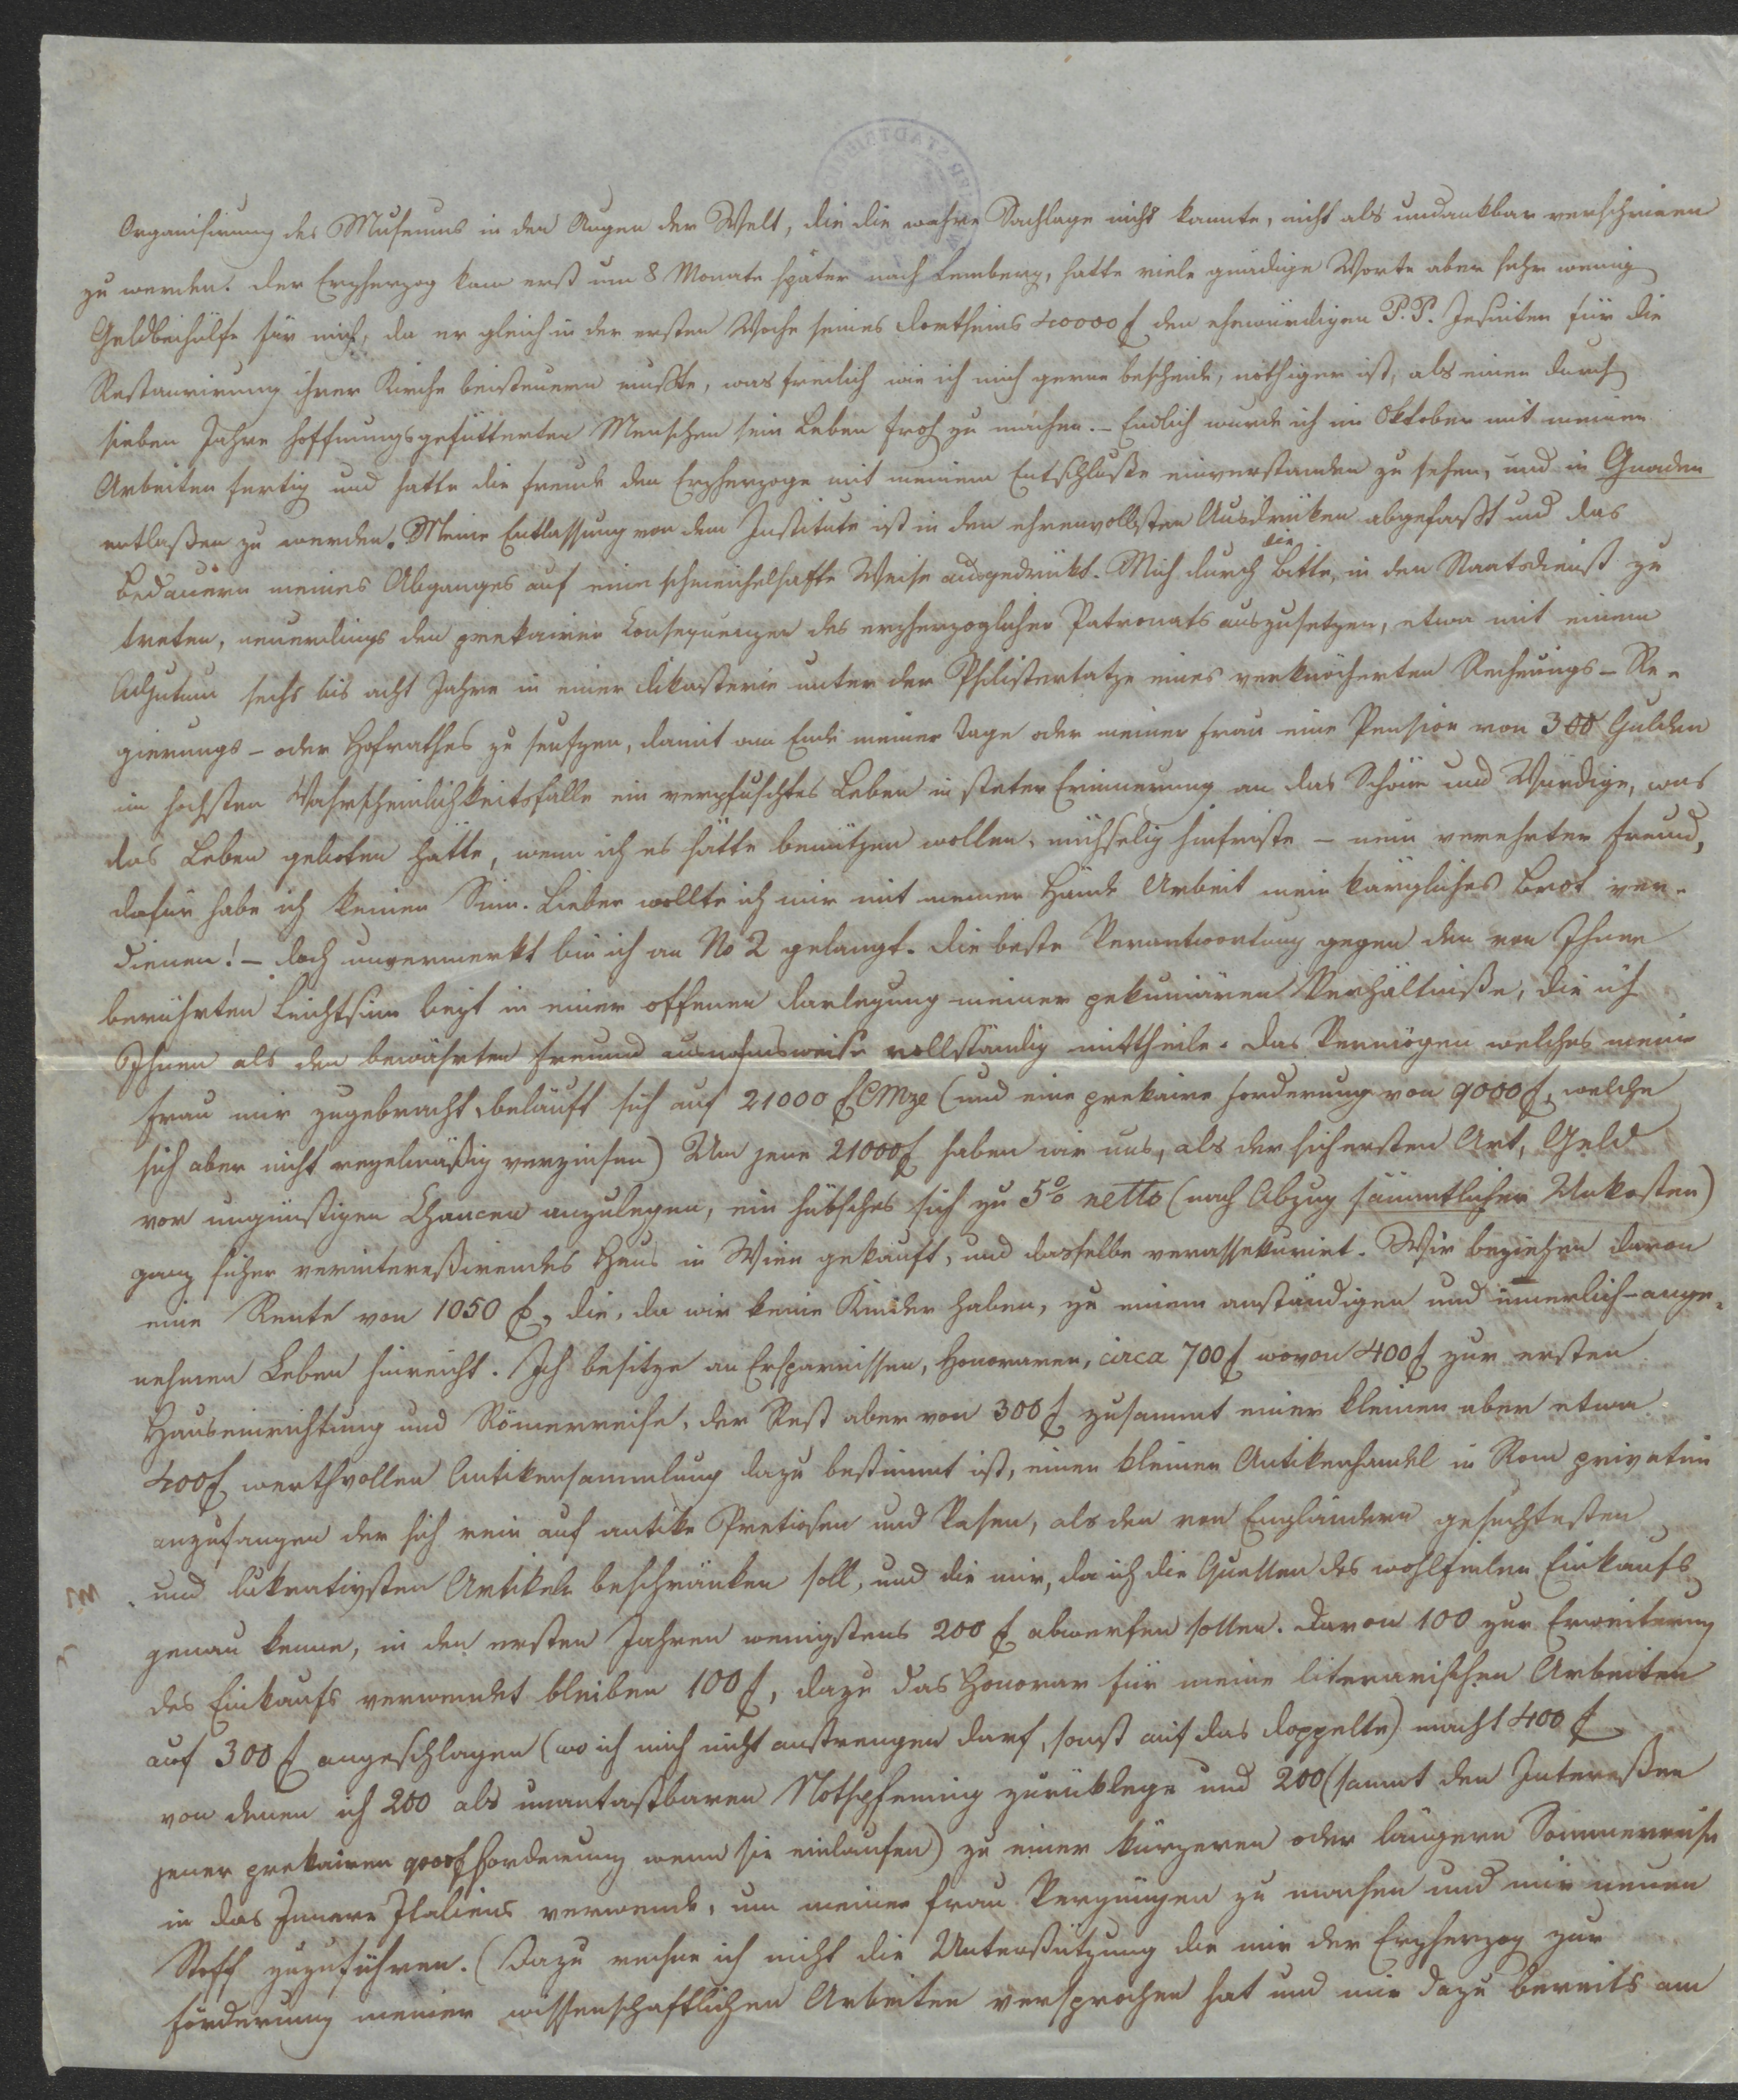 Organisirung des Museums in den Augen der Welt, die die wahre Sachlage nicht kannte, nicht als undankbar verschrieen
zu werden. Der Erzherzog kam erst um 8 Monate später nach Lemberg, hatte viele gnädige Worte aber sehr wenig
Geldbeihülfe für mich, da er gleich in der ersten Woche seines Dortseins 40000 f den ehrwürdigen P.P. Jesuiten für die
Restaurirung ihrer Kirche beisteuern mußte, was freilich wie ich mich gerne bescheide, nöthiger ist, als einen durch
sieben Jahre hoffnungsgefütterten Menschen sein Leben froh zu machen. – Endlich wurde ich im Oktober mit meinen
Arbeiten fertig und hatte die Freude den Erzherzoge mit meinem Entschluße einverstanden zu sehen, und in Gnaden
entlaßen zu werden. Meine Entlassung von dem Institute ist in den ehrenvollsten Ausdrüken abgefaßt und das
Bedauern meines Abganges auf eine schmeichelhafte Weise ausgedrükt. Mich durch die Bitte, in den Staatsdienst zu
treten, neuerdings den prekairen Consequenzen des erzherzoglichen Patronats auszusetzen, etwa mit einem
Adjutum sechs bis acht Jahre in einer Dikasterie unter der Philistertatze eines verknöcherten Rechnungs – Re-
gierungs – oder Hofrathes zu seufzen, damit am Ende meiner Tage oder meiner Frau eine Pension von 300 Gulden
im höchsten Wahrscheinlichkeitsfalle ein verpfuschtes Leben in steter Erinnerung an das Schöne und Würdige, was
das Leben geboten hätte, wenn ich es hätte benützen wollen, mühselig hinfriste – nein verehrter Freund,
dafür habe ich keinen Sinn. Lieber wollte ich mir mit meiner Hände Arbeit mein kärgliches Brot ver-
dienen! – Doch unvermerkt bin ich an No 2 gelangt. Die beste Verantwortung gegen den von Ihnen
berührten Leichtsinn liegt in einer offenen Darlegung meiner pekuniären Verhältniße, die ich
Ihnen als den bewährten Freund ausnahmsweise vollständig mittheile. Das Vermögen welches meine
Frau mir zugebracht, beläuft sich auf 21000 f CMze (und eine prekaire Forderung von 9000 f, welche
sich aber nicht regelmäßig verzinsen) Um jene 21000 f haben wir uns, als der sichersten Art, Geld
vor ungünstigen Chancen anzulegen, ein hübsches sich zu 5% netto (nach Abzug sämmtlicher Unkosten)
ganz sicher verintereßirendes Haus in Wien gekauft, und dasselbe verassekurirt. Wir beziehen davon
eine Rente von 1050 f, die, da wir keine Kinder haben, zu einem anständigen und innerlich-ange-
nehmen Leben hinreicht. Ich besitze an Ersparnissen, Honoraren, circa 700 f wovon 400 f zur ersten
Hauseinrichtung und Römerreise, der Rest aber von 300 f zusammt einer kleinen aber etwa
400 f werthvollen Antikensammlung dazu bestimmt ist, einen kleinen Antikenhandel in Rom privatim
anzufangen der sich rein auf antike Pretiosen und Vasen, als den von Engländern gesuchtesten
und lukrativsten Artikeln beschränken soll, und die mir, da ich die Quellen des wohlfeilen Einkaufs
genau kenne, in den ersten Jahren wenigstens 200 f abwerfen sollen. Davon 100 zur Erweiterung
des Einkaufs verwendet bleiben 100 f, dazu das Honorar für meine literarischen Arbeiten
auf 300 f angeschlagen (wo ich mich nicht anstrengen darf, sonst auf das doppelte) macht 400 f
von denen ich 200 als unantastbaren Nothpfennig zurüklege und 200 (sammt den Intereßen
jener prekairen 9000 f Forderung wenn sie einlaufen) zu einer kürzeren oder längern Sommerreise
in das Innere Italiens verwende, um meiner Frau Vergnügen zu machen und mir neuen
Stoff zuzuführen. (Dazu rechne ich nicht die Unterstützung die mir der Erzherzog zur
Förderung meiner wissenschaftlichen Arbeiten versprochen hat und mir dazu bereits am